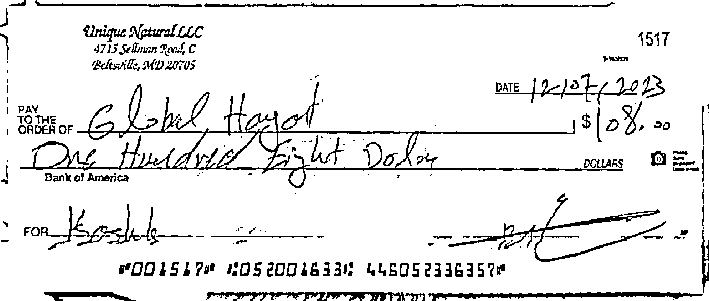 Unique Natural LLC
4715 Sellman Road, C
Beltsville, MD 20705
1517
DATE 12/07/2023
PAY TO THE ORDER OF Global Hayat $108.00
One Hundred Eight Dolar DOLLARS
Bank of America
FOR
⑈001517⑈ ⑆052001633⑆ 446052336357⑈